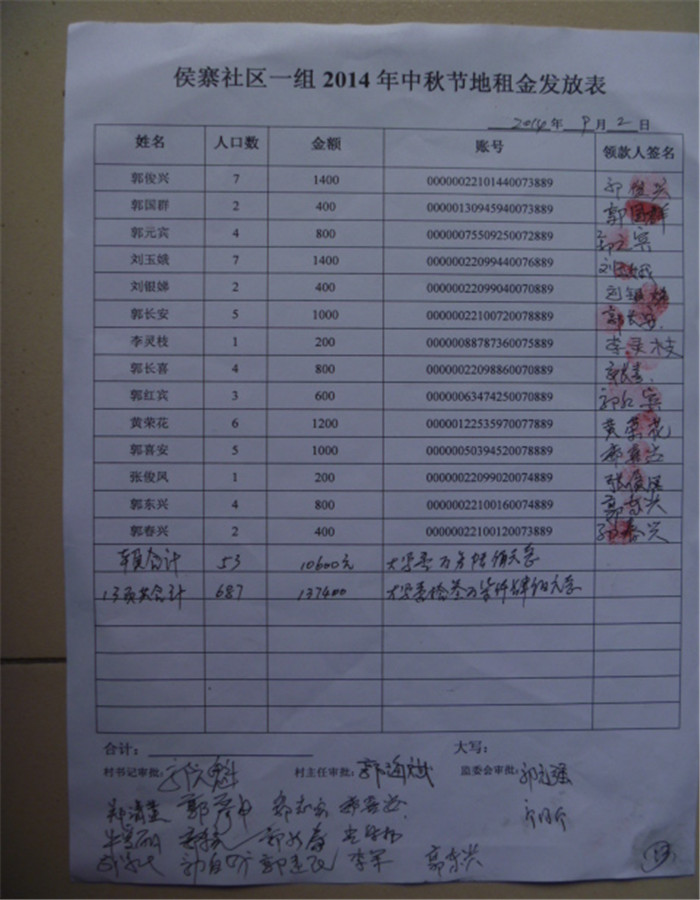 侯寨社区一组 2014 年中秋节地租金发放表
2014 年 9 月 2 日
姓名 人口数 金额 账号 领款人签名
郭俊兴 7 1400 00000022101440073889 郭俊兴
郭国群 2 400 00000130945940073889 郭国群
郭元宾 4 800 00000075509250072889 郭元宾
刘玉娥 7 1400 00000022099440076889 刘玉娥
刘银娣 2 400 00000022099040070889 刘银娣
郭长安 5 1000 00000022100720078889 郭长安
李灵枝 1 200 00000088787360075889 李灵枝
郭长喜 4 800 00000022098860070889 郭长喜
郭红宾 3 600 00000063474250070889 郭红宾
黄荣花 6 1200 00000122535970077889 黄荣花
郭喜安 5 1000 00000050394520078889 郭喜安
张俊风 1 200 00000022099020074889 张俊风
郭东兴 4 800 00000022100160074889 郭东兴
郭春兴 2 400 00000022100120073889 郭春兴
本页合计 53 10600元 大写壹万零陆佰元整
13页共合计 687 137400 大写壹拾叁万柒仟肆佰元整
合计： 大写：
村书记审批： 村主任审批： 监委会审批：
郭喜安
李军 郭东兴
13